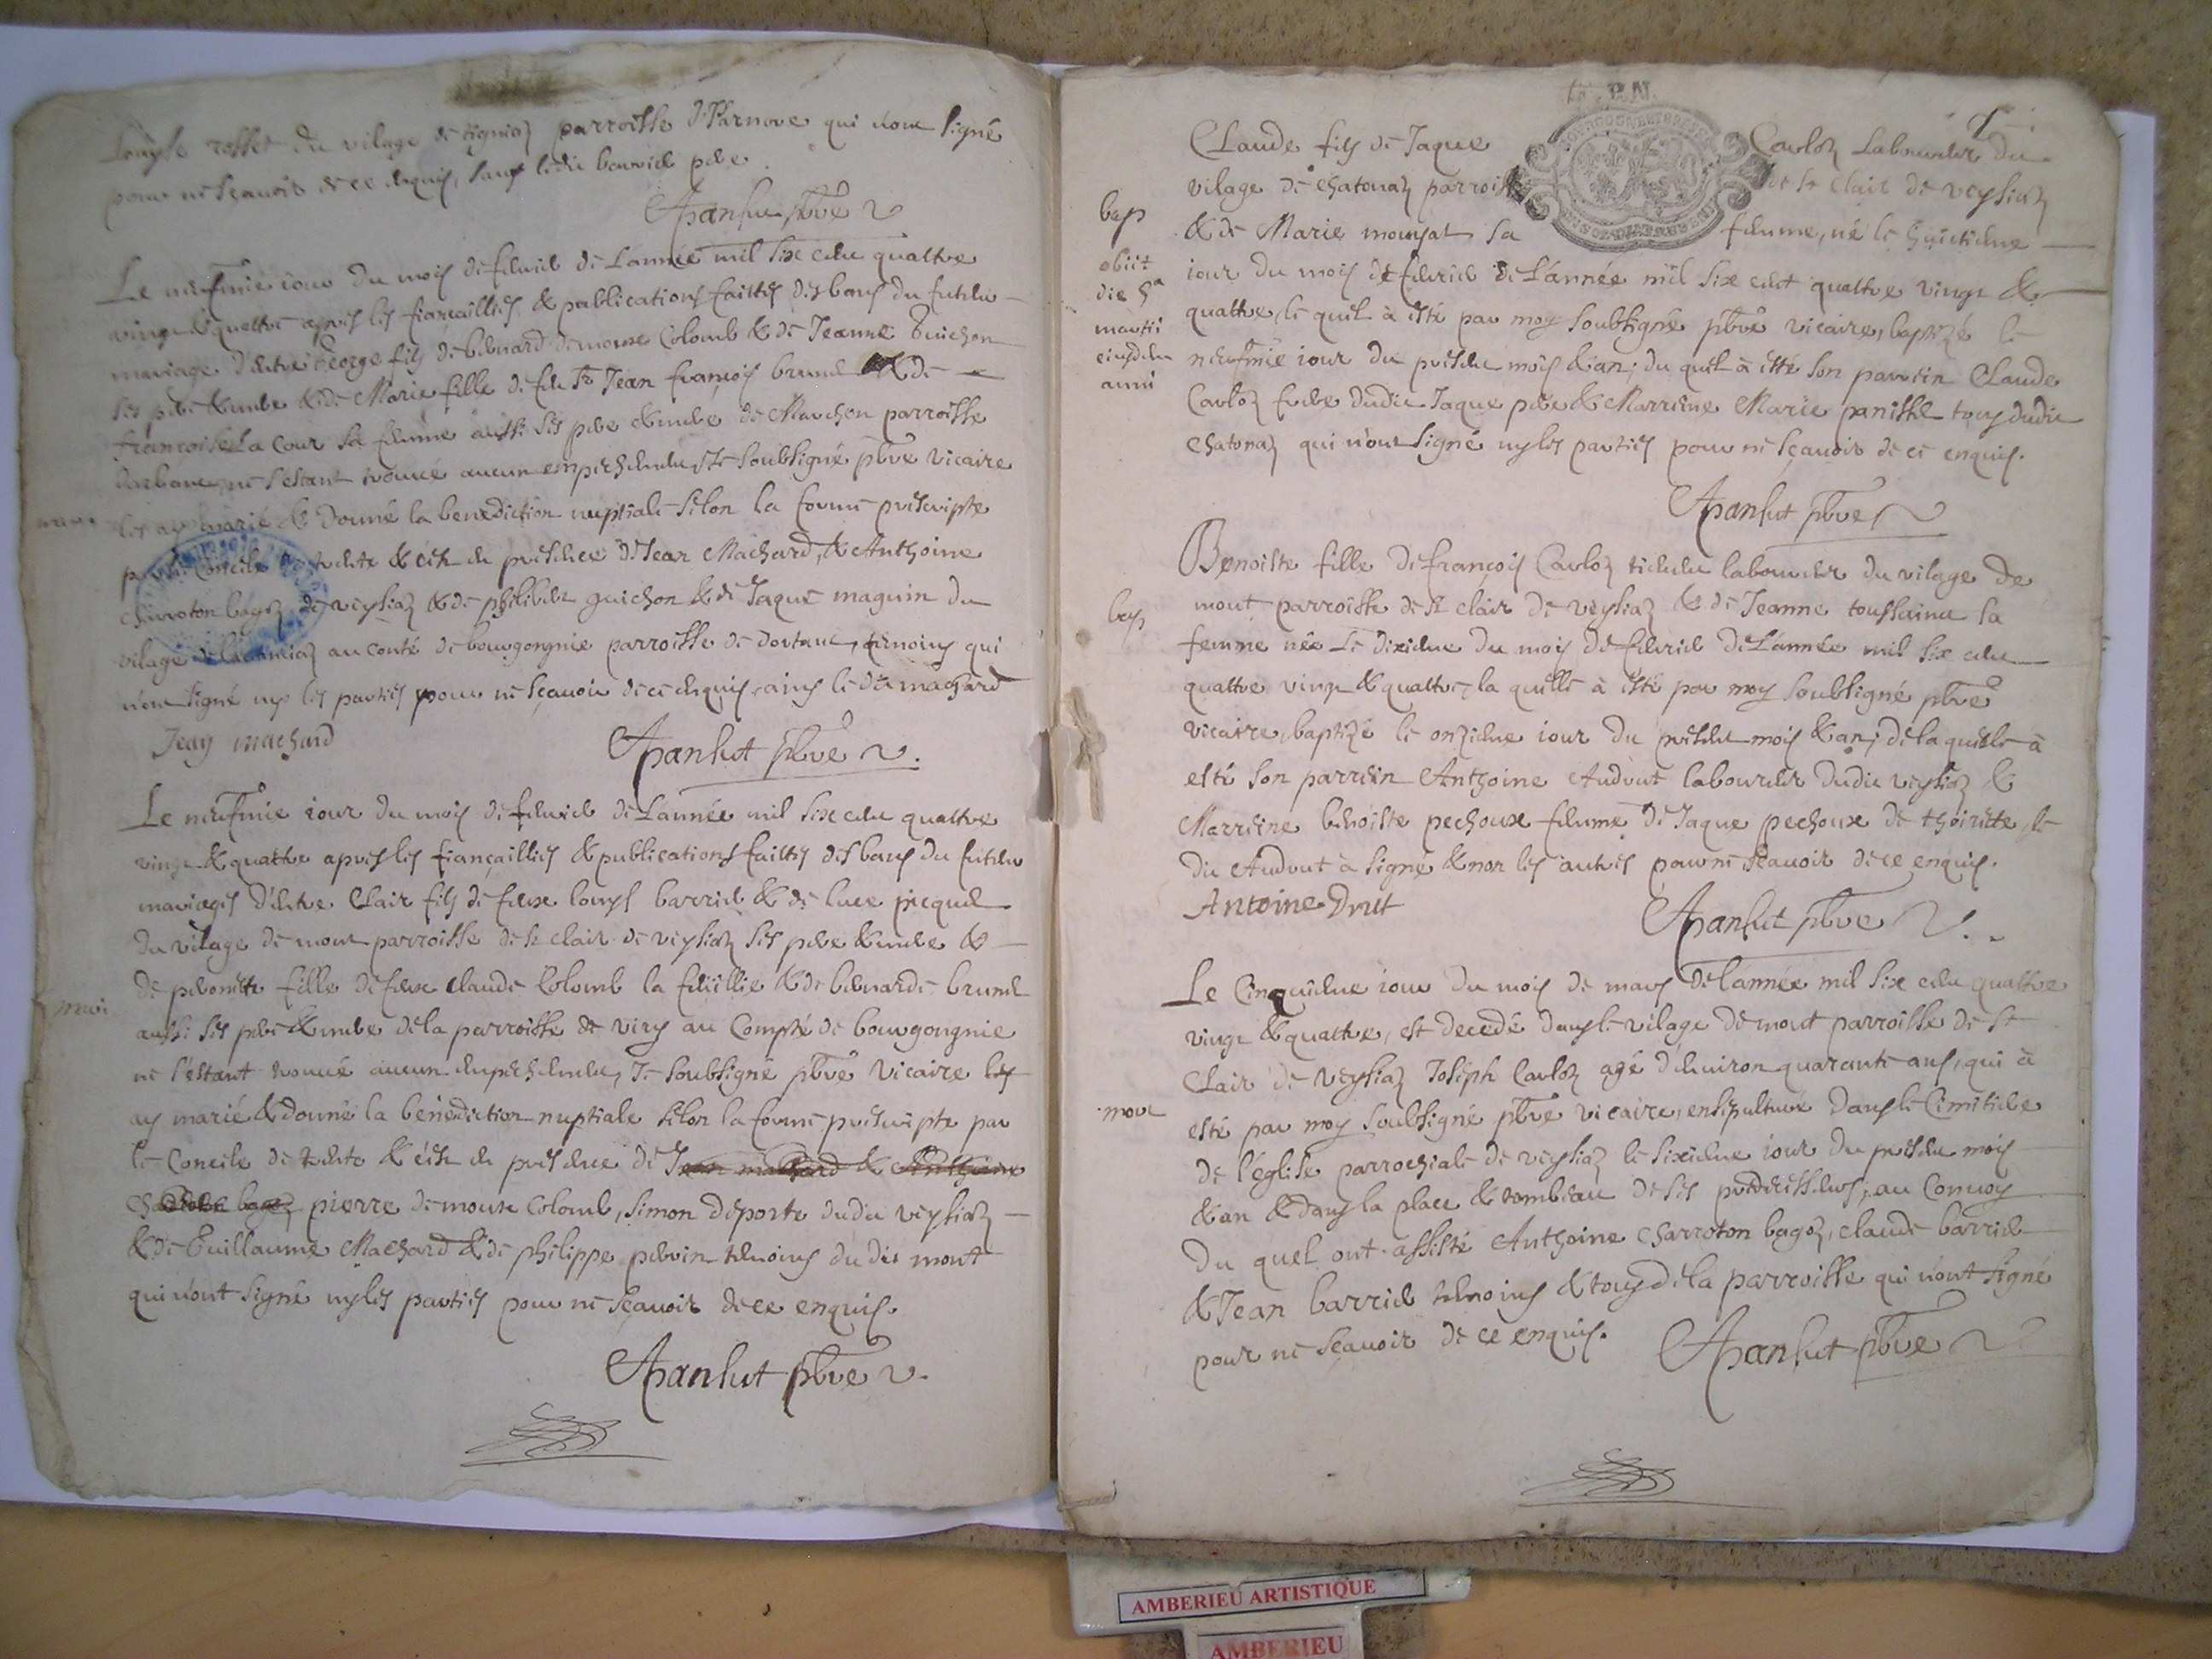 rosset du vilage de parroisse d'Harnove qui n'ont signé
pour ne sçavoir de ce enquis, sauf ledit bouvier pere
Apansut pbre
Le neufme iour du moy de febvrier de L'année mil six cent quattre
vingt & quattre apres les fiançaillies & publications faittes des bans du futeur
mariage d'entre George fils de benard demoux Colomb & de Jeanne Guichon
ses pere & mere & de Marie fille de feu Sr Jean françois brunel & de
françoise La Cour sa femme aussi ses pere & mere de Marchon parroisse
ne s'estant trouvé aucun empeschement, Je soubsigné pbre vicaire
les ay marié & donné la benediction nuptiale selon la forme prescripte
par le Concile de trente & c'est en presence de Jean Machard, & Anthoine
charroton bagoz de veysiaz & de philibert guichon & de Jaque maguin du
vilage au conté de bourgongnie parroisse de dortanc, temoins qui
n'ont signé ny les parties pour ne sçavoir de ce enquis, ains ledit machard
Jean machard
Apansut pbre
Le neufme iour du moy de febvrier de L'année mil six cent quattre
vingt & quattre apres les fiançaillies & publications faittes des bans du futeur
mariages d'entre Clair fils de feux louys barrier & de luce picquet
du vilage de mont parroisse de st clair de veysiaz ses pere & mere &
de pernette fille de feux claude Colomb la feüillie & de benarde brunel
aussi ses pere & mere de la parroisse de viry au Compté de bourgongnie
ne s'estant trouvé aucun empeschement, Je soubsigné pbre vicaire les
ay marié & donné la bénédiction nuptiale selon la forme prescripte par
le Concile de trente & c'est en presence de Jean machard & Anthoine
bagoz pierre demoux Colomb, simon deporte dudit veysiaz
& de Guillaume Machard & de philippe pervin temoins dudit mont
qui n'ont signé ny les parties pour ne sçavoir de ce enquis.
Apansut pbre
mari
Claude fils de Jaque Carloz Laboureur du
vilage de chatonaz parroisse de st clair de veysiaz
& de Marie monsat sa femme, né le huictieme
iour du moys de febvrier de L'année mil six cent quattre vingt &
quattre, le quel à esté par moy soubsigné pbre vicaire, baptizé le
neufme iour du present mois & an; du quel à esté son parrein Claude
Carloz frere dudit Jaque pere & Marreine Marie panisset tous dudit
chatonaz qui n'ont signé ny les parties pour ne sçavoir de ce enquis.
Apansut pbre
bap
obiit
die 5a
martii
eiusdem
anni
Benoiste fille de françois Carloz tiennent laboureur du vilage de
mont parroisse de st clair de veysiaz & de Jeanne toussainct sa
femme née Le dixieme du mois de febvrier de L'année mil six cent
quattre vingt & quattre, la quelle à esté par moy soubsigné pbre
vicaire, baptizé le onzieme iour du present mois & an; de la quelle à
esté son parrein Anthoine Audrut laboureur dudit veysiaz &
Marreine benoiste pechoux femme de Jaque pechoux de thoirette, le
dit Audrut à signé & non les autres pour ne sçavoir de ce enquis.
Antoine Drut
Apansut pbre
bap
Le Cinquieme iour du moys de mars de l'année mil six cent quattre
vingt & quattre, est decedé dans le vilage de mont parroisse de st
Clair de veysiaz Joseph Carloz agé d'environ quarante ans, qui à
esté par moy soubsigné pbre vicaire, ensepulturé dans le Cimetiere
de l'eglise parrochiale de veysiaz le sixieme iour du present mois
& an & dans la place & tombeau de ses predecesseurs, au Convoy
du quel ont assisté Anthoine charroton bagoz, claude barrier
& Jean barrier temoins & tous de la parroisse qui n'ont signé
pour ne sçavoir de ce enquis.
Apansut pbre
mort
AMBERIEU ARTISTIQUE
AMBERIEU